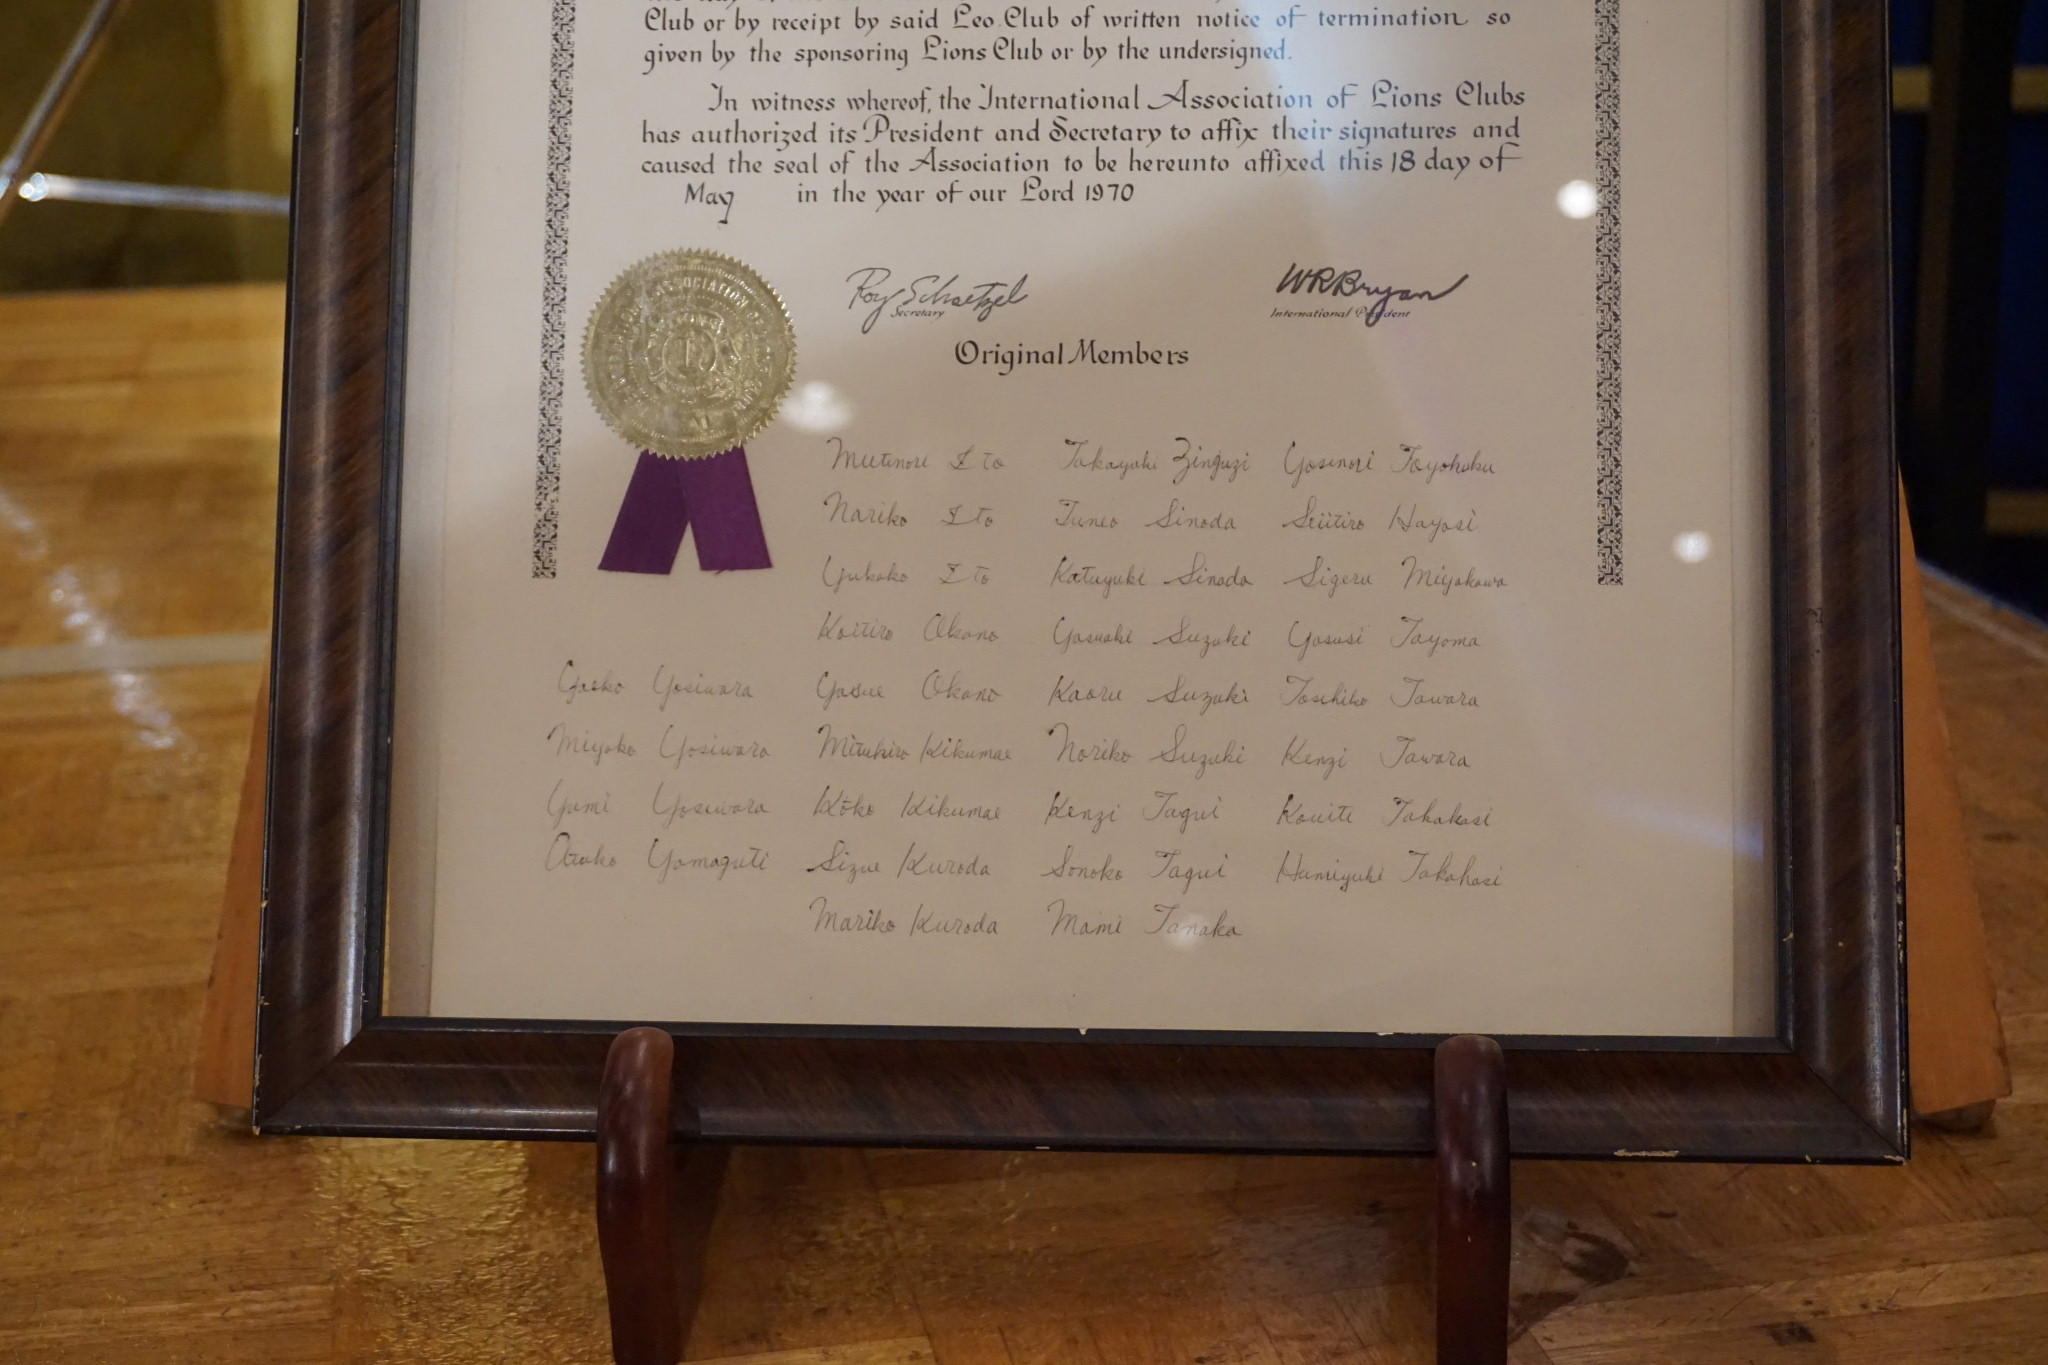 Club or by receipt by said Leo Club of written notice of termination so
given by the sponsoring Lions Club or by the undersigned.
In witness whereof, the International Association of Lions Clubs
has authorized its President and Secretary to affix their signatures and
caused the seal of the Association to be hereunto affixed this 18 day of
May in the year of our Lord 1970
Roy Schaetzel
Secretary
WRBryan
International President
Original Members
Mutinori Ito Takayuki Zinguzi Yosinori Toyohuku
Nariko Ito Tuneo Sinoda Seiitiro Hayasi
Yukako Ito Katuyuki Sinoda Sigeru Miyakawa
Koitiro Okano Yasuaki Suzuki Yasusi Tayama
Yosiwara Yasue Okano Kaoru Suzuki Tosihiko Tawara
Miyoko Yosiwara Mituhiro Kikumae Noriko Suzuki Kenzi Tawara
Yumi Yosiwara Kōko Kikumae Kenzi Tagui Kouiti Takahasi
Yamaguti Sizue Kuroda Sonoko Tagui Humiyuki Takahasi
Mariko Kuroda Mami Tanaka